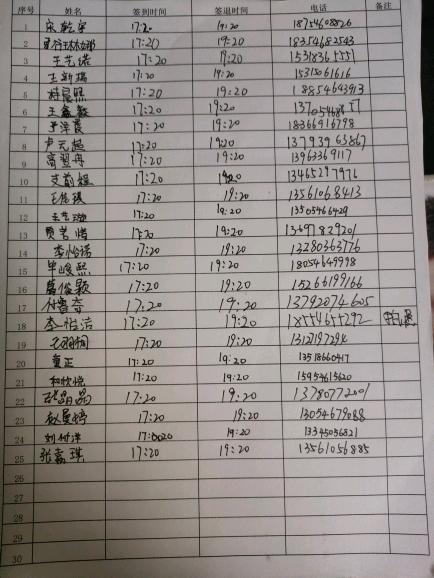 序号 姓名 签到时间 签退时间 电话 备注
1 宋乾宇 17:20 19:20 18754608826
2 17:20 19:20 18354682543
3 王艺诺 17:20 19:20
4 王新瑞 17:20 19:20 15315061616
5 17:20 19:20 18854643913
6 王鑫毅 17:20 19:20
7 尹泽晨 17:20 19:20 18366916798
8 卢元超 17:20 19:20 13793963867
9 高翌冉 17:20 19:20 13963369117
10 支前程 17:20 19:20 13465297976
11 王佳琪 17:20 19:20 13561068413
12 17:20 19:20 13505466429
13 贾若惜 17:20 19:20 13697829201
14 李怡诺 17:20 19:20 13280363776
15 毕峻熙 17:20 19:20 18054649998
16 葛俊颖 17:20 19:20 15266199166
17 付鲁奇 17:20 19:20 13792074605
18 李怡洁 17:20 19:20 18554655292
19 17:20 19:20 13127197294
20 夏正 17:20 19:20 13518660417
21 和欣悦 17:20 19:20 15954615620
22 张晶晶 17:20 19:20 13780772001
23 赵曼婷 17:20 19:20 13054679088
24 刘付洋 19:20 13345056821
25 张嘉琪 17:20 19:20 13561056885
26
27
28
29
30